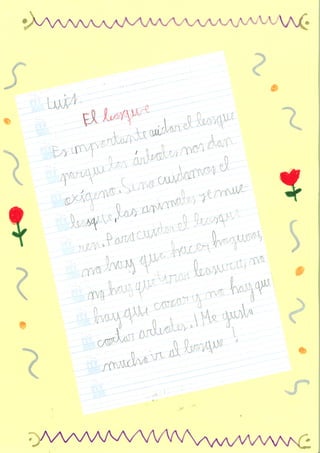 Luis
El bosque
Es importante cuidar el bosque
porque los árboles nos dan
oxígeno. Si no cuidamos el
bosque, los animales se mue-
ren. Para cuidar el bosque
no hay que hacer hogueras,
no hay que tirar basura, no
hay que cazar y no hay que
cortar árboles. ¡Me gusta
mucho ir al bosque!